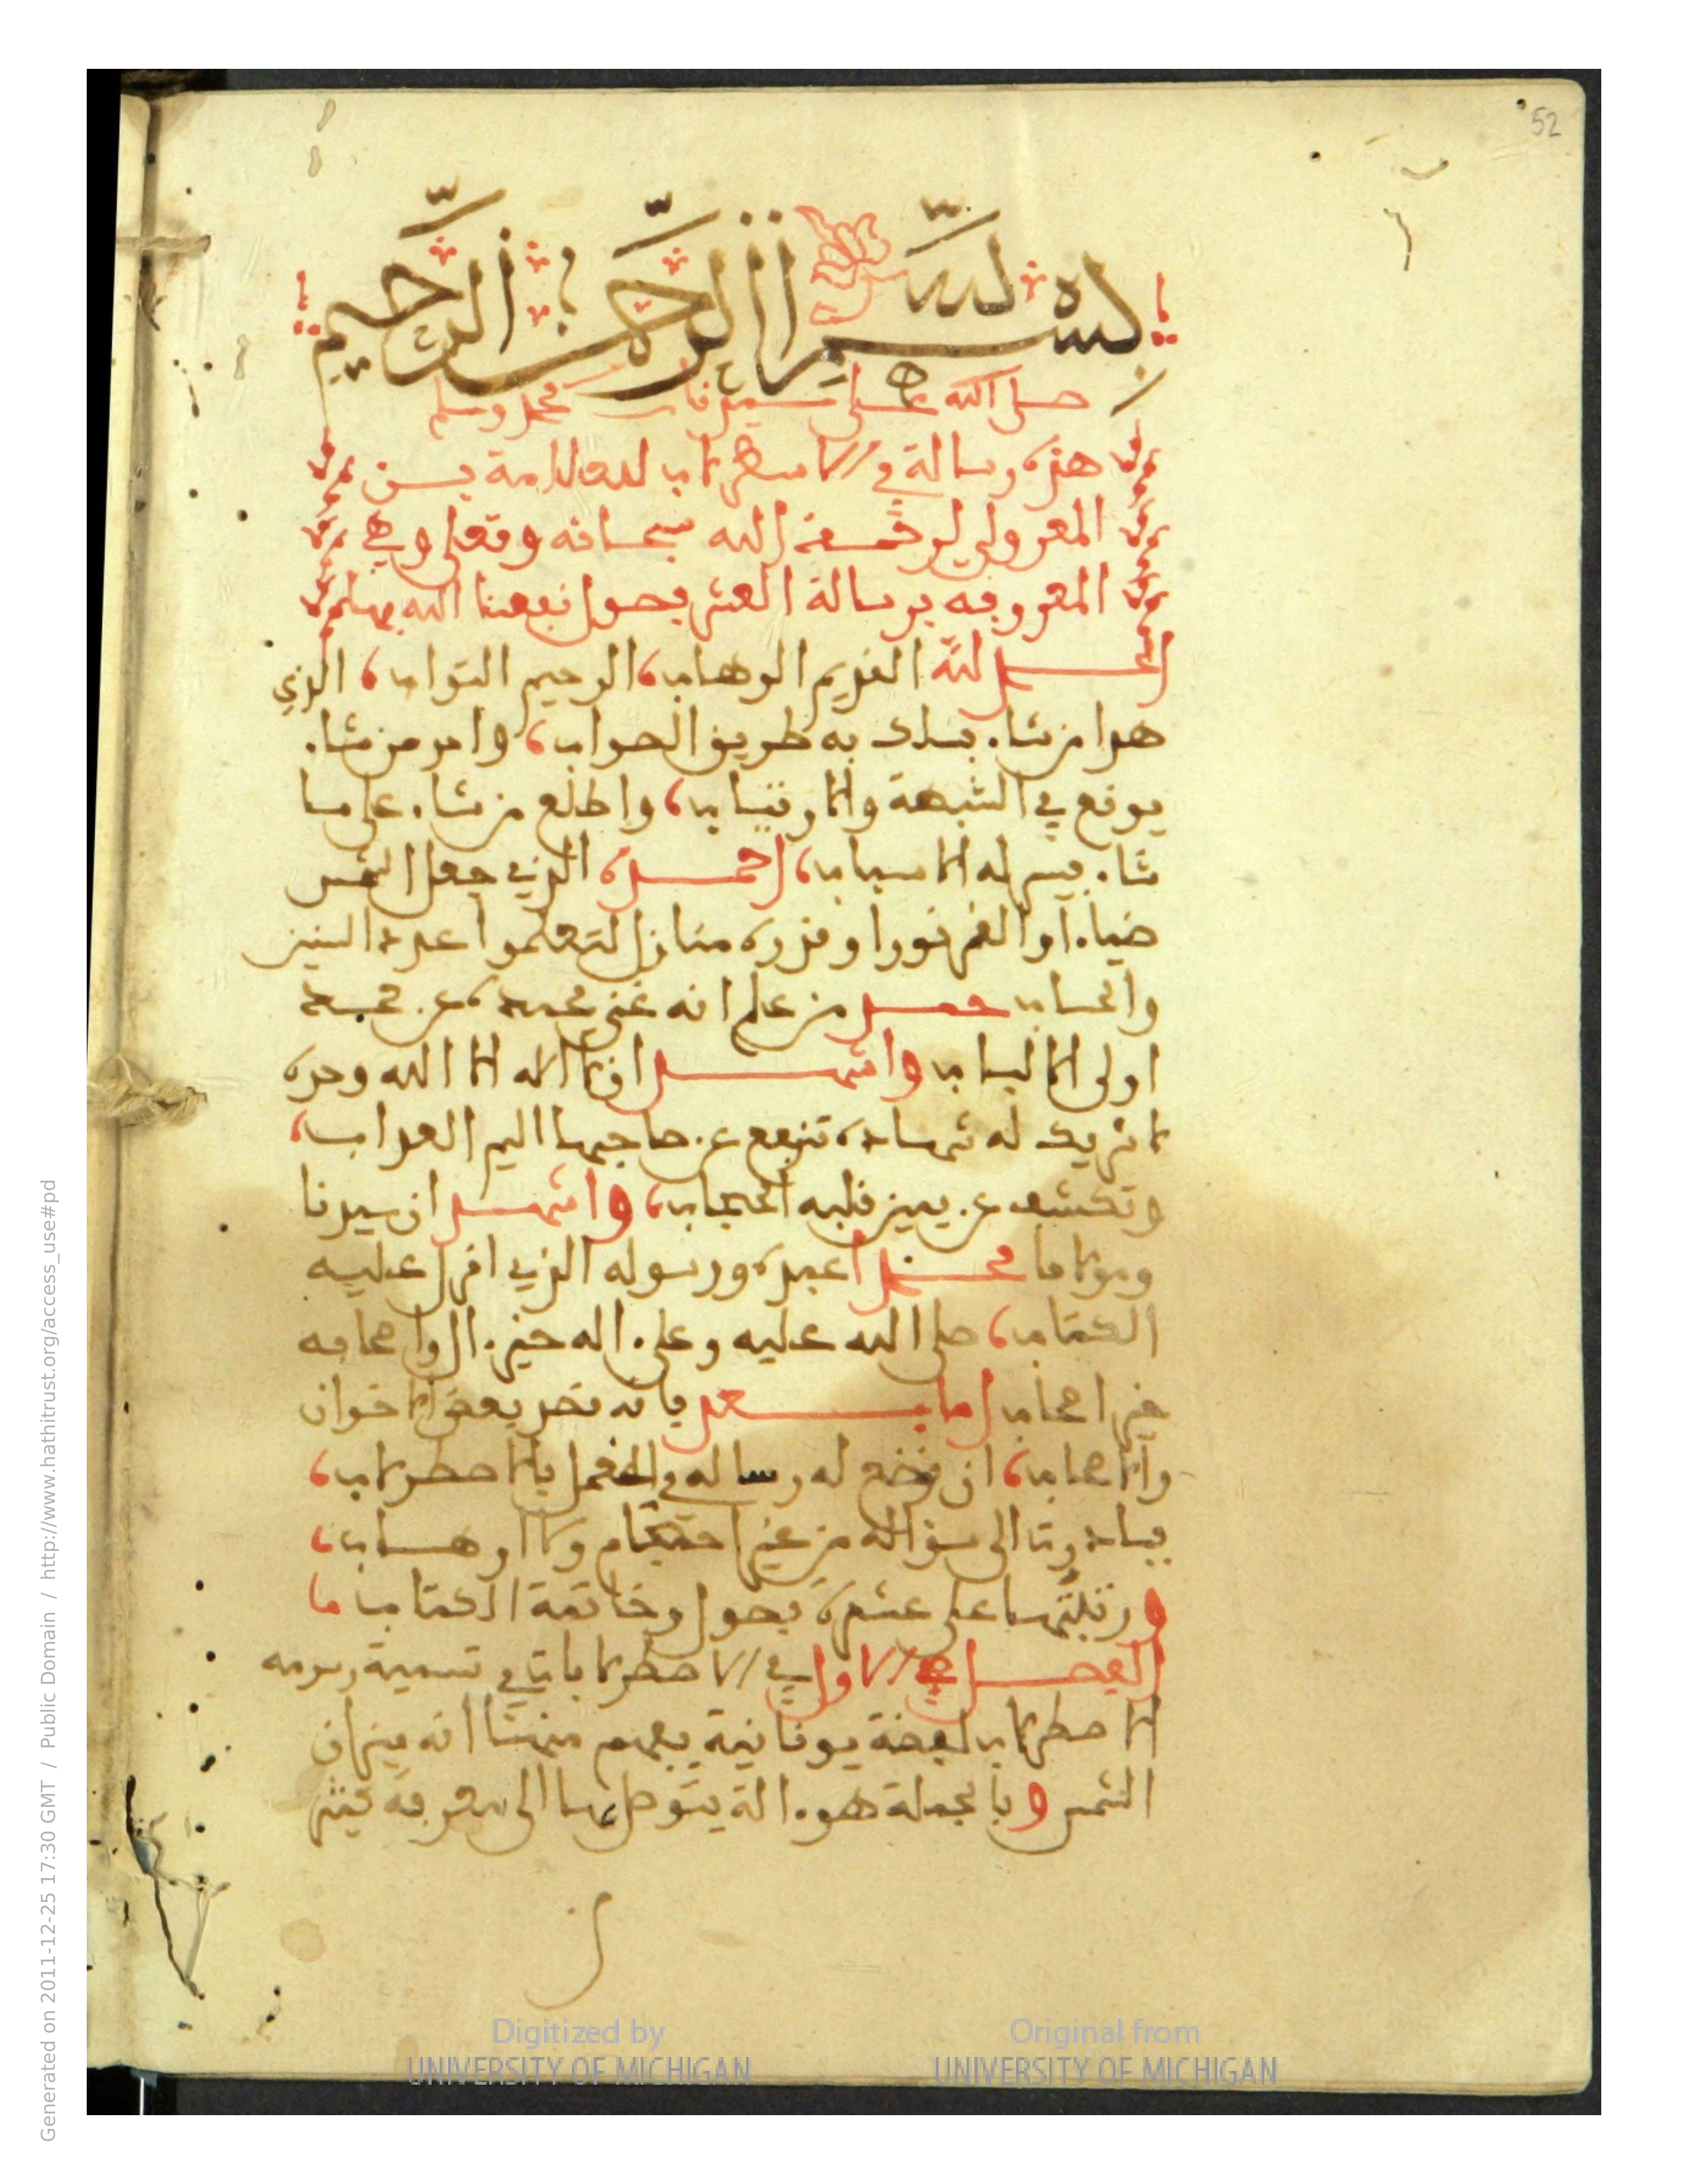 52
بسم الله الرحمن الرحيم
صلى الله على سيدنا محمد وسلم
هذه رسالة في الاسطرلاب للعلامة
المعرو رحمه الله سبحانه وتعلى وهي
المعروفه برسالة العشر فصول نفعنا الله بها
الحمد لله القديم الوهاب، الرحيم التواب، الذي
هدا من شاء بسلك به طريق الصواب، وامر من شاء
يوقع في الشبهة والارتياب، واطلع من شاء على ما
شاء بيسر له الاسباب، احمده الذي جعل الشمس
ضياءا والقمر نورا وقدره منازل لتعلموا عدد السنين
والحساب حمد من علم انه غني
اولى الالباب واشهد ان لا اله الا الله وحده
لا شريك له شهادة تدفع عن صاحبها اليم العذاب،
وتكشف عن قلبه الحجاب، واشهد ان سيدنا
ومولانا محمدا عبده ورسوله الذي انزل عليه
الكتاب، صلى الله عليه وعلى اله خير ال واصحابه
خير اصحاب اما بعد فانه بعض الاخوان
والاصحاب، ان نضع له رسالة في العمل بالاصطرلاب،
فبادرت الى سؤاله من غير احتجام ولا ارهاب،
ورتبتها على عشرة فصول وخاتمة الكتاب
الفصل الاول في الاصطرلاب في تسمية رسومه
الاصطرلاب لفضة يونانية يفهم منها انه ميزان
الشمس وبالجملة هو الة يتوصل بها الى معرفة كثير
Digitized by
UNIVERSITY OF MICHIGAN
Original from
UNIVERSITY OF MICHIGAN
Generated on 2011-12-25 17:30 GMT / http://www.hathitrust.org/access_use#pd
Public Domain